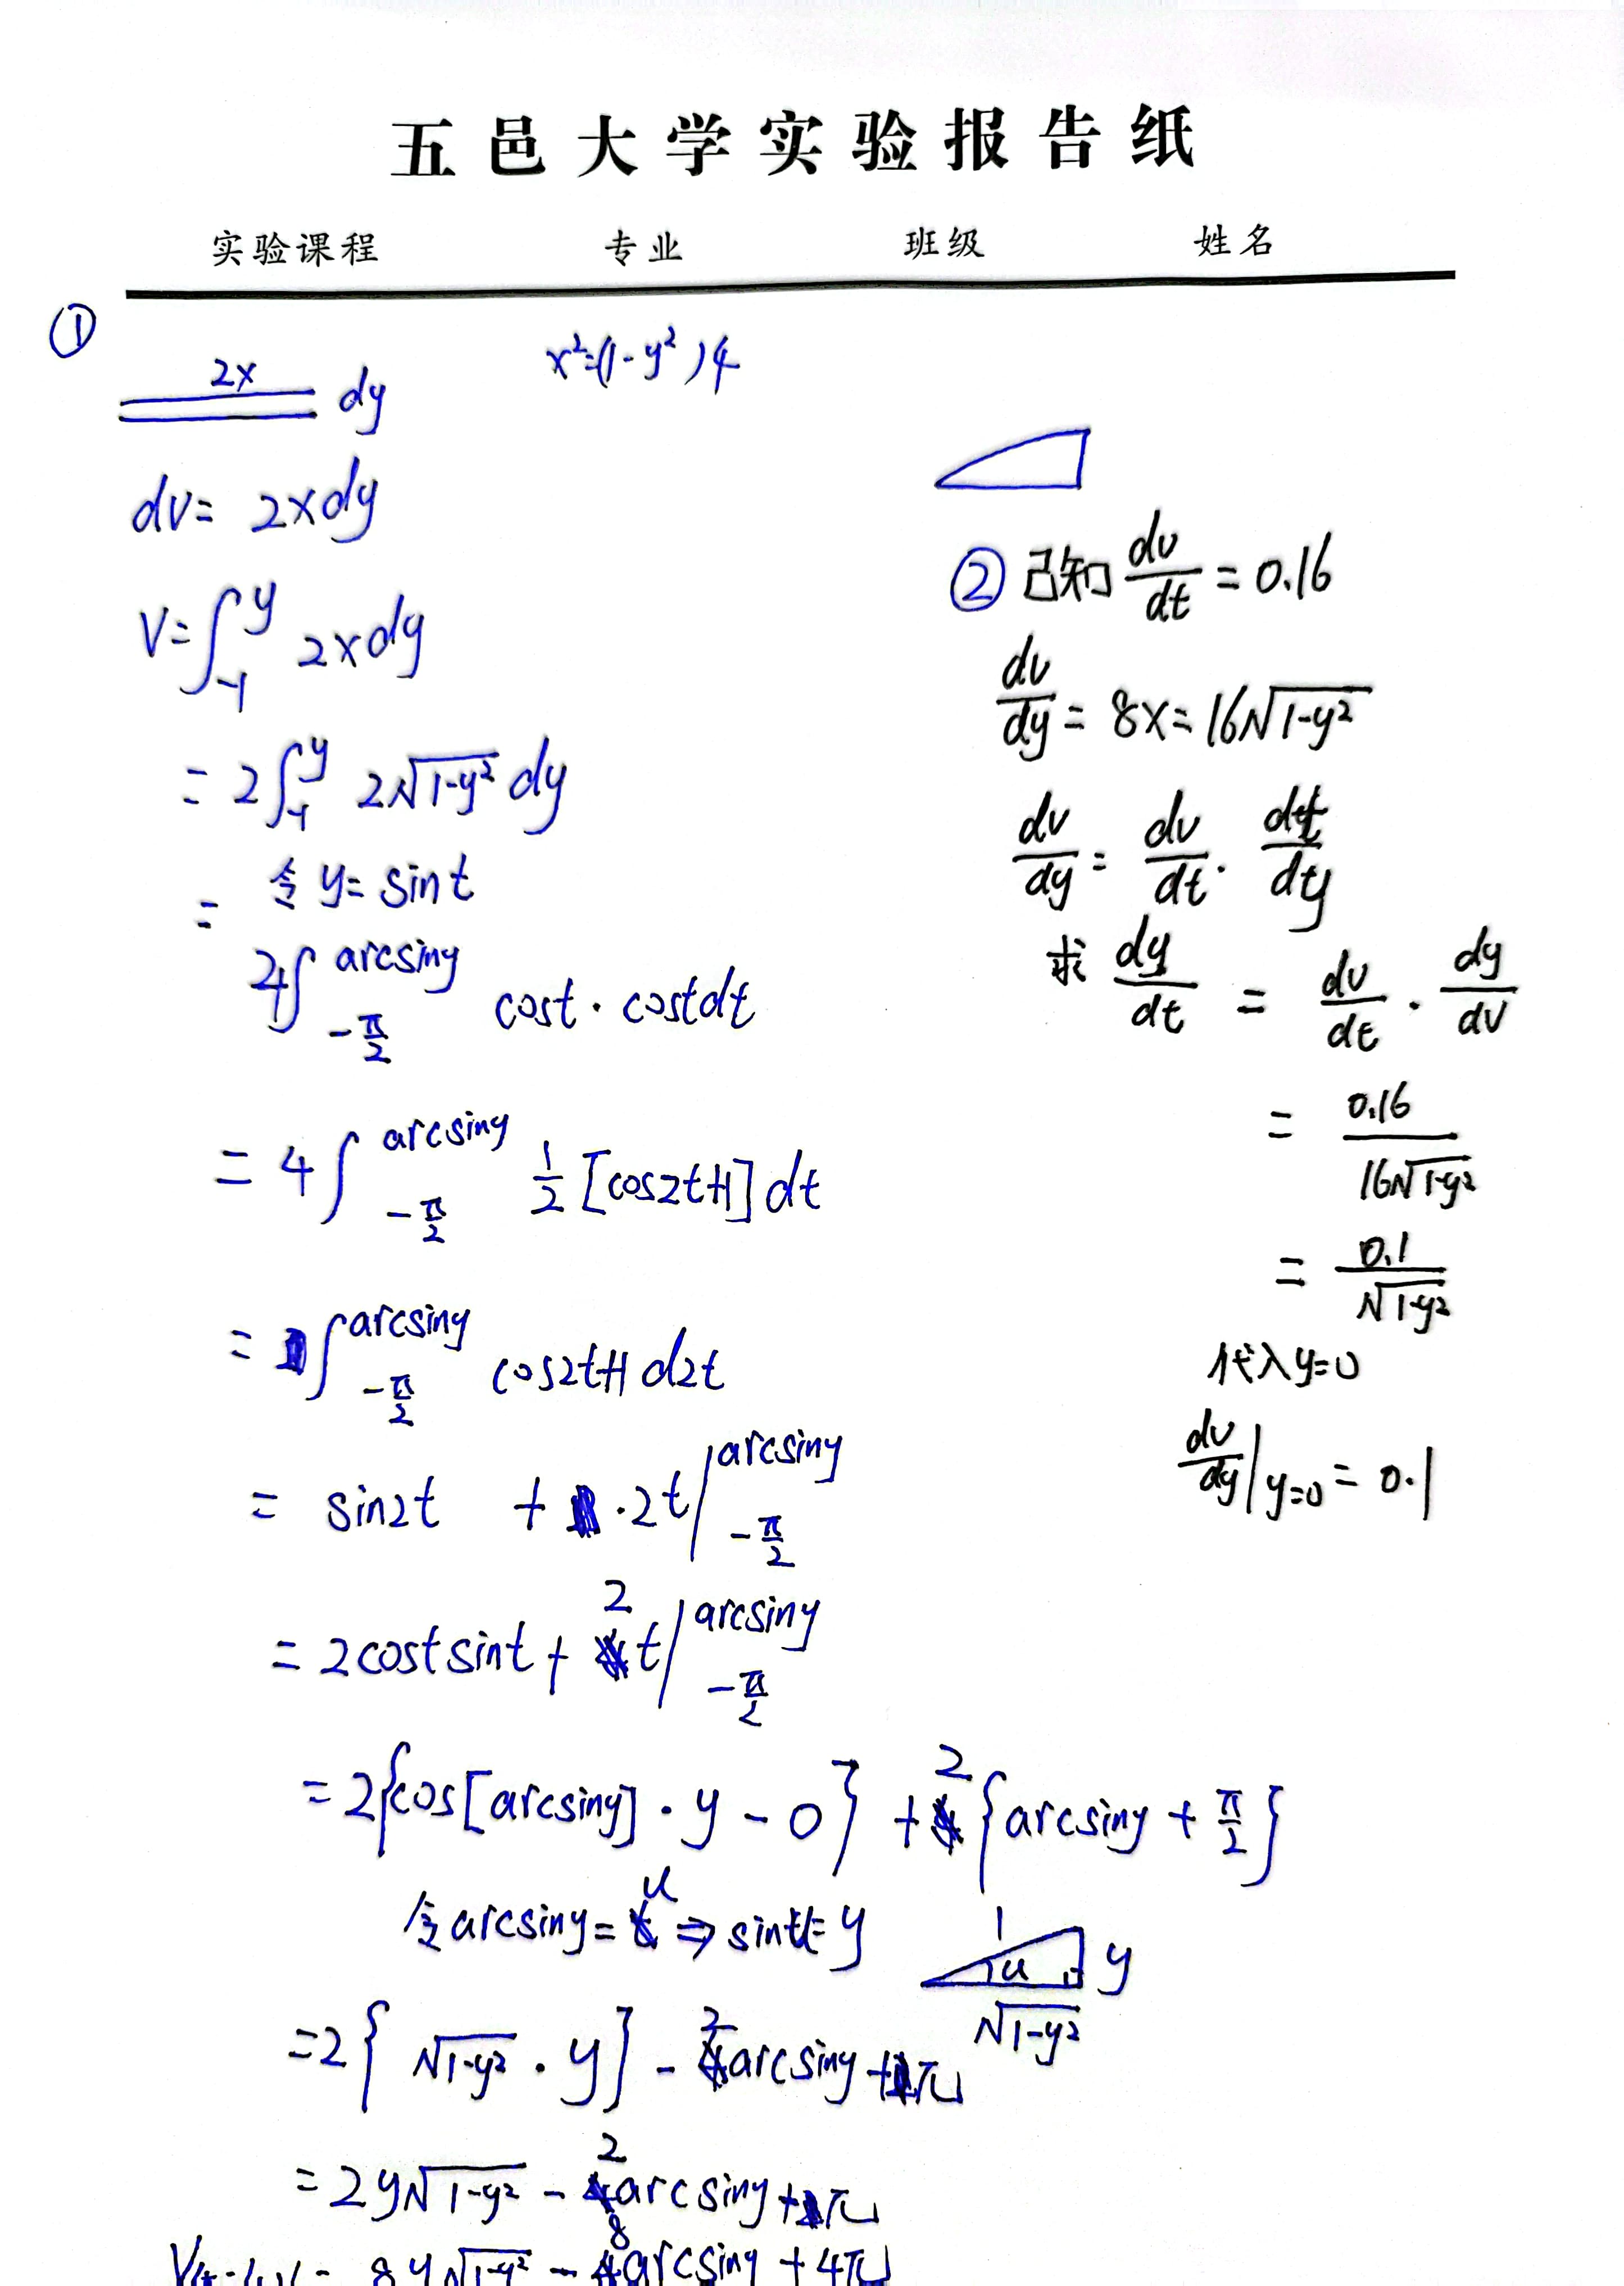 五邑大学实验报告纸
实验课程 专业 班级 姓名
①
2x dy
x²=(1-y²)4
dv= 2xdy
V=∫_{-1}^{y} 2xdy
= 2∫_{-1}^{y} 2√(1-y²) dy
令 y= sint
=
4∫_{-π/2}^{arcsiny} cost·costdt
= 4∫_{-π/2}^{arcsiny} 1/2 [cos2t+1]dt
= ∫_{-π/2}^{arcsiny} cos2t+1 d2t
= sin2t + ·2t|_{-π/2}^{arcsiny}
= 2costsint + 2t|_{-π/2}^{arcsiny}
= 2{cos[arcsiny]·y - 0} + 2{arcsiny + π/2}
令arcsiny= u ⇒ sinu= y
1 u y √(1-y²)
=2{√(1-y²)·y} - 2arcsiny + π
= 2y√(1-y²) - 2arcsiny + π
8y√(1-y²) - 8arcsiny + 4π
② 已知 dv/dt = 0.16
dv/dy = 8x = 16√(1-y²)
dv/dy = dv/dt · dt/dy
求 dy/dt = dv/dt · dy/dv
= 0.16/16√(1-y²)
= 0.1/√(1-y²)
代入y=0
dv/dy|y=0 = 0.1